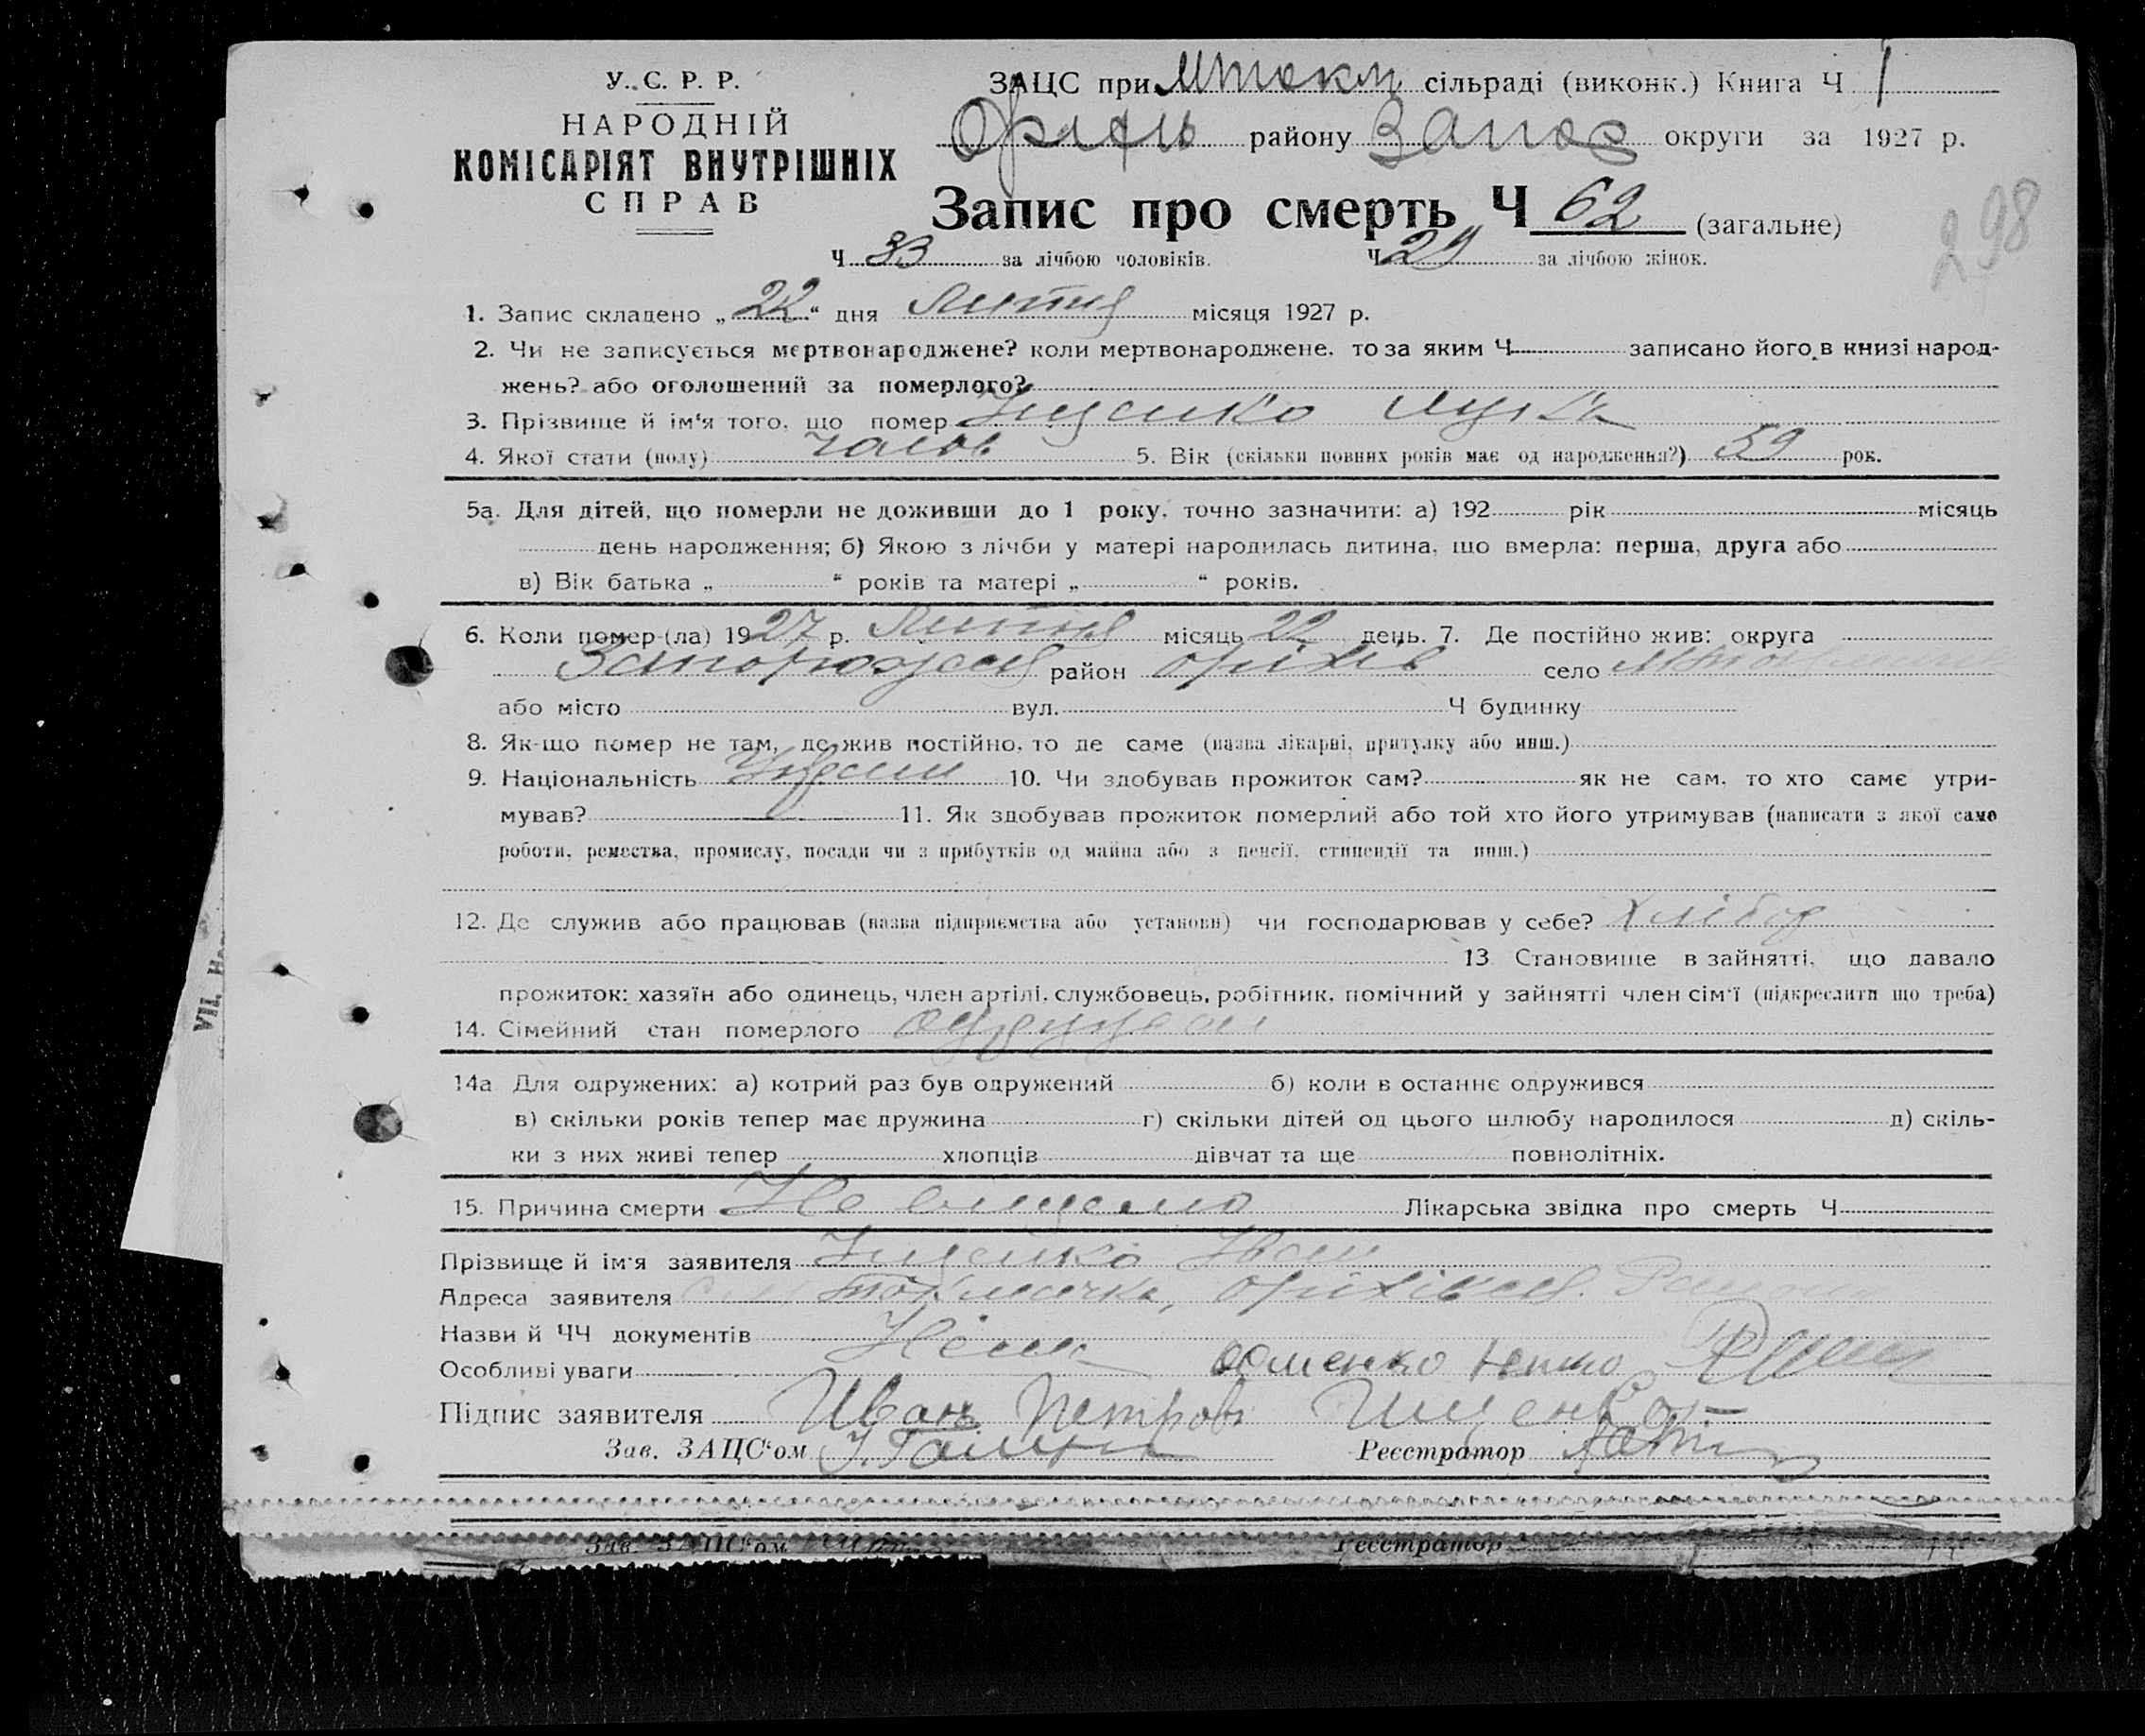 У. С. Р. Р.
НАРОДНІЙ
КОМІСАРІЯТ ВНУТРІШНІХ
СПРАВ
ЗАЦС при Мтокм сільраді (виконк.) Книга Ч 1
Оріхів району Запор округи за 1927 р.
Запис про смерть Ч 62 (загальне)
298
Ч 33 за лічбою чоловіків. Ч 29 за лічбою жінок.
1. Запис складено „22“ дня Липня місяця 1927 р.
2. Чи не записується мертвонароджене? коли мертвонароджене, то за яким Ч записано його в книзі народ-
жень? або оголошений за померлого?
3. Прізвище й ім'я того, що помер Іщенко Лука
4. Якої стати (полу) чолов 5. Вік (скільки повних років має од народження?) 59 рок.
5а. Для дітей, що померли не доживши до 1 року, точно зазначити: а) 192 рік місяць
день народження; б) Якою з лічби у матері народилась дитина, що вмерла: перша, друга або
в) Вік батька „ “ років та матері „ “ років.
6. Коли помер-(ла) 1927 р. Липня місяць 22 день. 7. Де постійно жив: округа
Запорожся район Оріхів село
або місто вул. Ч будинку
8. Як-що помер не там, де жив постійно, то де саме (назва лікарні, притулку або инш.)
9. Національність Україн 10. Чи здобував прожиток сам? як не сам, то хто саме утри-
мував? 11. Як здобував прожиток померлий або той хто його утримував (написати з якої саме
роботи, ремества, промислу, посади чи з прибутків од майна або з пенсії, стипендії та инш.)
12. Де служив або працював (назва підприємства або установи) чи господарював у себе? Хлібор
13 Становище в зайнятті, що давало
прожиток: хазяїн або одинець, член артілі, службовець, робітник, помічний у зайнятті член сім'ї (підкреслити що треба)
14. Сімейний стан померлого одружен
14а Для одружених: а) котрий раз був одружений б) коли в останнє одружився
в) скільки років тепер має дружина г) скільки дітей од цього шлюбу народилося д) скіль-
ки з них живі тепер хлопців дівчат та ще повнолітніх.
15. Причина смерти Не Лікарська звідка про смерть Ч
Прізвище й ім'я заявителя Іщенко Іван
Адреса заявителя Токмачка, Оріхівся
Назви й ЧЧ документів Нема
Особливі уваги
Підпис заявителя Иванъ Петров Ищенко
Зав. ЗАЦС'ом Реєстратор
Зав. ЗАЦС'ом Реєстратор
VII. На